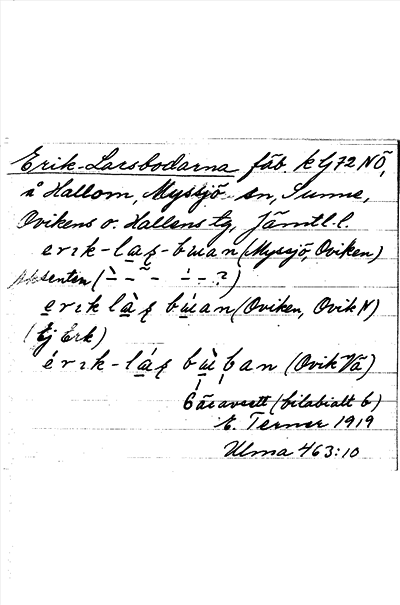 Erik-Larsbodarna fäb. k bj 72 NÖ,
å Hallom, Myssjö sn, Sunne,
Ovikens o. Hallens tg, Jämtl. l.
erık-laş-bɯan (Myssjö, Oviken)
Aksenten ( ̀ – – ̃ – ́ – – ?)
erık làş bɯ́an (Oviken, Ovik N)
(Ej Erk)
érık-láş bɯ̀ban (Ovik Vä)
b är avsett (bilabialt b)
E. Terner 1919
Ulma 463:10